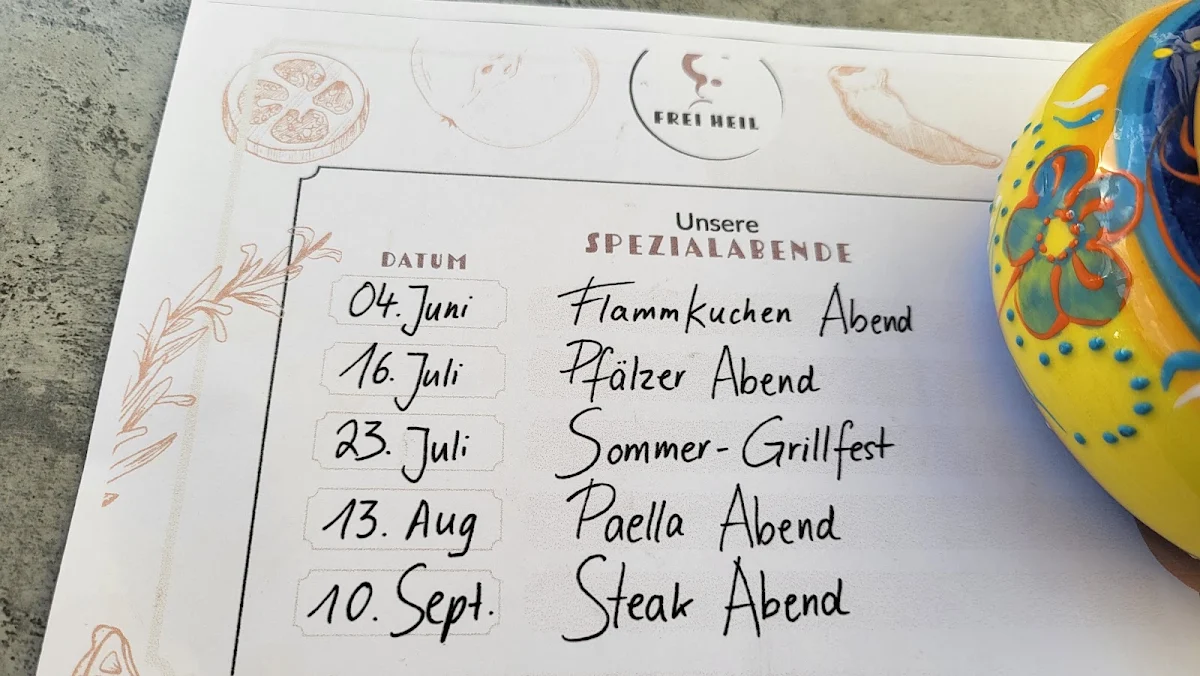 FREI HEIL
Unsere
SPEZIALABENDE
DATUM
04. Juni Flammkuchen Abend
16. Juli Pfälzer Abend
23. Juli Sommer-Grillfest
13. Aug Paella Abend
10. Sept. Steak Abend